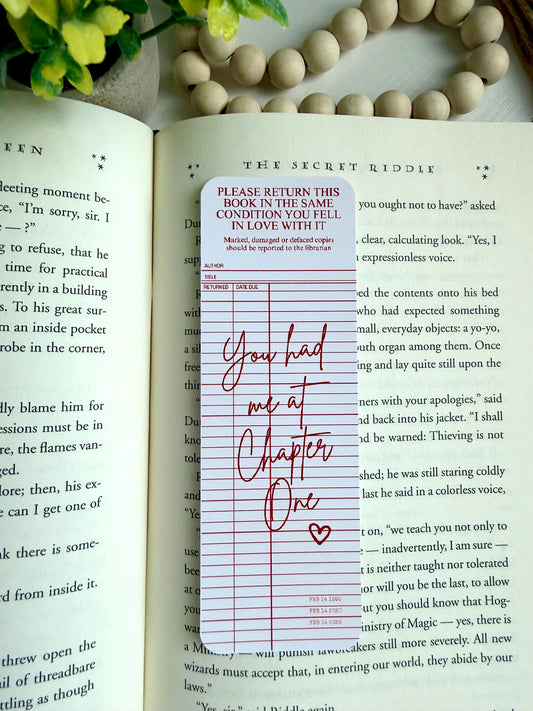 EEN
fleeting moment be-
ce, "I'm sorry, sir. I
— ?"
ng to refuse, that he
time for practical
rrently in a building
s. To his great sur-
m an inside pocket
robe in the corner,
dly blame him for
essions must be in
re, the flames van-
ged.
lore; then, his ex-
e can I get one of
nk there is some-
rd from inside it.
threw open the
ail of threadbare
ttling as though
THE SECRET RIDDLE
you ought not to have?" asked
clear, calculating look. "Yes, I
expressionless voice.
ed the contents onto his bed
who had expected something
mall, everyday objects: a yo-yo,
outh organ among them. Once
ing and lay quite still upon the
ners with your apologies," said
nd back into his jacket. "I shall
nd be warned: Thieving is not
shed; he was still staring coldly
last he said in a colorless voice,
t on, "we teach you not only to
— inadvertently, I am sure —
t is neither taught nor tolerated
nor will you be the last, to allow
ut you should know that Hog-
inistry of Magic — yes, there is
a Ministry — will punish lawbreakers still more severely. All new
wizards must accept that, in entering our world, they abide by our
laws."
"Yes, sir," said Riddle again.
PLEASE RETURN THIS
BOOK IN THE SAME
CONDITION YOU FELL
IN LOVE WITH IT
Marked, damaged or defaced copies
should be reported to the librarian
AUTHOR
TITLE
RETURNED DATE DUE
You had
me at
Chapter
One
FEB 14 1990
FEB 14 2020
FEB 14 2026